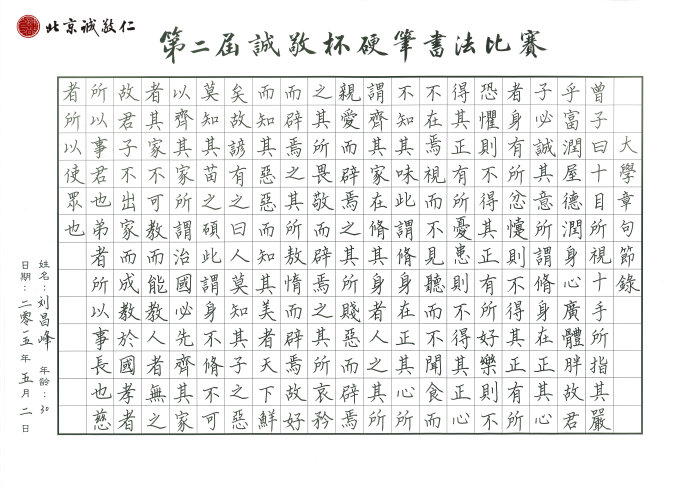 北京诚敬仁
第二届誠敬杯硬筆書法比賽
大學章句節錄
曾子曰十目所視十手所指其嚴
乎富潤屋德潤身心廣體胖故君
子必誠其意所謂脩身在正其心
者身有所忿懥則不得其正有所
恐懼則不得其正有所好樂則不
得其正有所憂患則不得其正心
不在焉視而不見聽而不聞食而
不知其味此謂脩身在正其心所
謂齊其家在脩其身者人之其所
親愛而辟焉之其所賤惡而辟焉
之其所畏敬而辟焉之其所哀矜
而辟焉之其所敖惰而辟焉故好
而知其惡惡而知其美者天下鮮
矣故諺有之曰人莫知其子之惡
莫知其苗之碩此謂身不脩不可
以齊其家所謂治國必先齊其家
者其家不可教而能教人者無之
故君子不出家而成教於國孝者
所以事君也弟者所以事長也慈
者所以使眾也
姓名：刘昌峰 年龄：30
日期：二零一五年五月二日